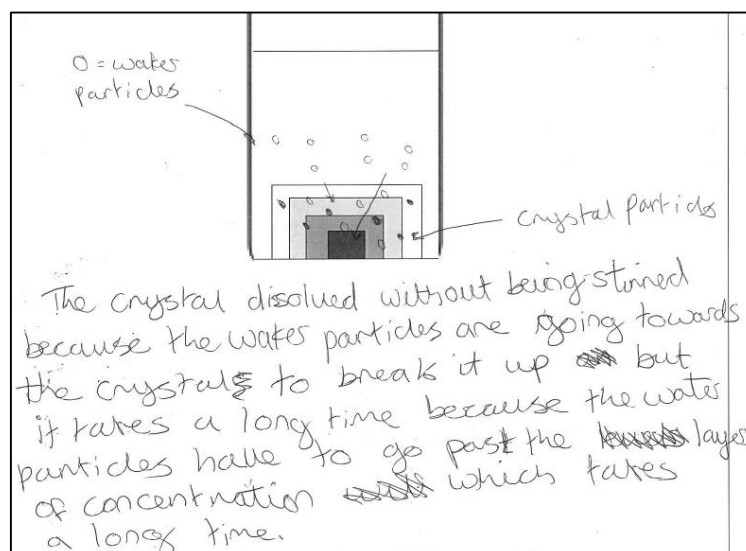 O = water
particles
crystal particls
The crystal disolved without being stirred
because the water particles are going towards
the crystal to break it up but
it takes a long time because the water
particles have to go past the layer
of concentration which takes
a long time.